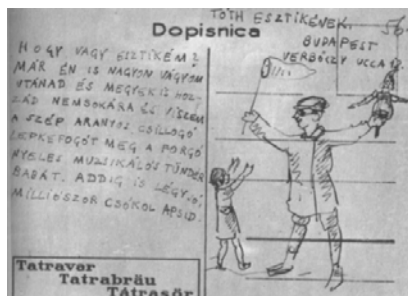 Dopisnica
TÓTH ESZTIKÉNEK.
BUDAPEST
VERBŐCZY UCCA
HOGY VAGY ESZTIKÉM?
MÁR ÉN IS NAGYON VÁGYOM
UTÁNAD ÉS MEGYEK IS HOZ-
ZÁD NEMSOKÁRA ÉS VISZEM
A SZÉP ARANYOS CSILLOGÓ
LEPKEFOGÓT MEG A FORGÓ
NYELES MUZSIKÁLÓS TÜNDÉR
BABÁT. ADDIG IS LÉGY JÓ,
MILLIÓSZOR CSÓKOL APSID.
Tatraver
Tatrabräu
Tátrasör